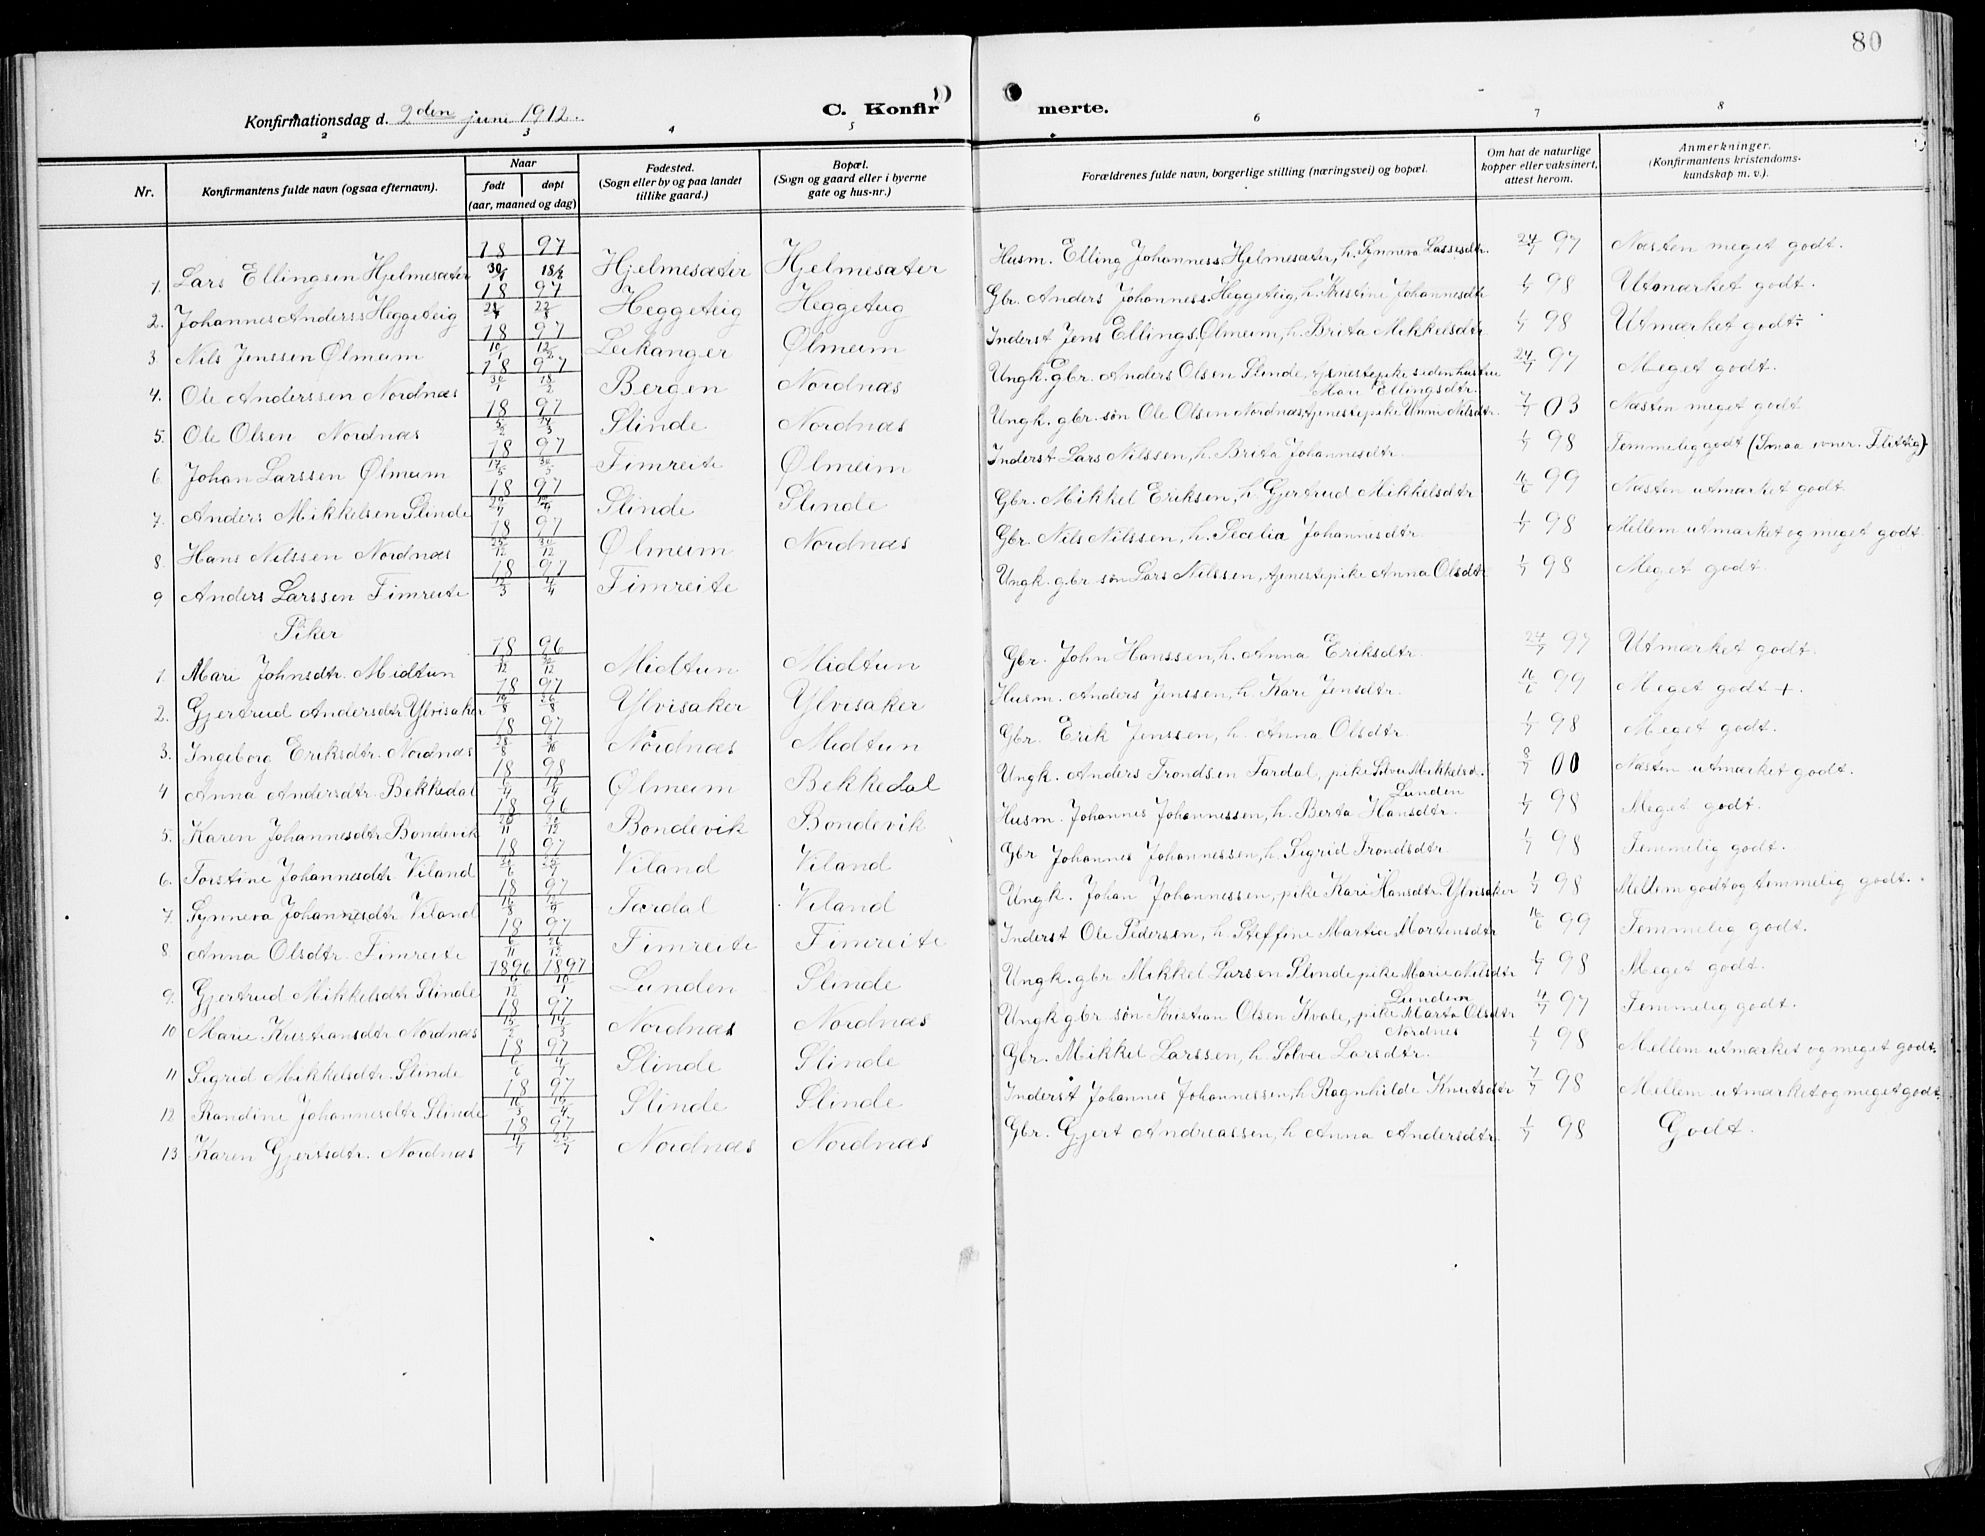 80
Konfirmationsdag d. 2den juni 1912.
C. Konfirmerte.
2 3 4 5 6 7 8
Nr.
Konfirmantens fulde navn (ogsaa efternavn).
Naar
født døpt
(aar, maaned og dag)
Fødested.
(Sogn eller by og paa landet
tillike gaard.)
Bopæl.
(Sogn og gaard eller i byerne
gate og hus-nr.)
Forældrenes fulde navn, borgerlige stilling (næringsvei) og bopæl.
Om hat de naturlige
kopper eller vaksinert,
attest herom.
Anmerkninger.
(Konfirmantens kristendoms-
kundskap m. v.).
1. Lars Ellingsen Hjelmesæter 18 97 30/1 Hjelmesæter Hjelmesæter Husm. Elling Johanness. Hjelmesæter, h. Synneva Lassesdtr. 24/7 97 Næsten meget godt.
2. Johannes Anderss Heggeteig 18 97 Heggeteig Heggeteig Gbr. Anders Johanness. Heggeteig, h. Kristine Johannesdtr 1/7 98 Utmærket godt.
3 Nils Jenssen Ølmeim 18 97 Leikanger Ølmeim Inderst Jens Ellings. Ølmeim, h. Brita Mikkelsdtr 1/7 98 Utmærket godt÷
4. Ole Anderssen Nordnæs 18 97 Bergen Nordnæs Ungk. gbr. Anders Olsen Slinde, tjenestepike siden hustru Mari Ellingsdtr. 24/7 97 Meget godt.
5. Ole Olsen Nordnæs 18 97 Slinde Nordnæs Ungk. gbr. søn Ole Olsen Nordnæs, tjenestepike Unni Nilsdtr. 7/7 03 Næsten meget godt
6 Johan Larssen Ølmeim 18 97 Fimreite Ølmeim Inderst Lars Nilssen, h. Brita Johannesdtr. 1/7 98 Temmelig godt (Smaa evner. Flittig).
7. Anders Mikkelsen Slinde 18 97 Slinde Slinde Gbr. Mikkel Eriksen, h. Gjertrud Mikkelsdtr 16/6 99 Næsten utmærket godt
8. Hans Nilssen Nordnæs 18 97 Ølmeim Nordnæs Gbr. Nils Nilssen, h. Secelia Johannesdtr. 1/7 98 Mellem utmærket og meget godt.
9 Anders Larssen Fimreite 18 97 Fimreite Ungk. gbr søn Lars Nilssen, tjenestepike Anna Olsdtr 1/7 98 Meget godt.
Piker
1. Mari Johnsdtr. Midtun 18 96 Midtun Midtun Gbr. John Hanssen, h. Anna Eriksdtr. 24/7 97 Utmærket godt.
2. Gjertrud Andersdtr Ylvisaker 18 97 Ylvisaker Ylvisaker Husm. Anders Jenssen, h. Kari Jensdtr. 16/6 99 Meget godt +.
3. Ingeborg Eriksdtr. Nordnæs 18 97 Nordnæs Midtun Gbr. Erik Jenssen, h. Anna Olsdtr. 1/7 98 Meget godt.
4 Anna Andersdtr. Bekkedal 18 98 Ølmeim Bekkedal Ungk. Anders Trondsen Fardal, pike Solvei Mikkelsd. Lunden 8/7 00 Næsten utmærket godt.
5. Karen Johannesdtr Bondevik 18 96 Bondevik Bondevik Husm. Johannes Johannessen, h. Berta Hansdtr. 1/7 98 Meget godt.
6. Torstine Johannesdtr. Viland 18 97 Viland Viland Gbr Johannes Johannessen, h. Sigrid Trondsdtr. 1/7 98 Temmelig godt.
7. Synneva Johannesdtr Viland 18 97 Fardal Viland Ungk. Johan Johannessen, pike Kari Hansdtr. Ylvisaker 1/7 98 Mellem godt og temmelig godt.
8 Anna Olsdtr. Fimreite 18 97 Fimreite Fimreite Inderst Ole Pedersen, h. Steffine Martia Mortensdtr 16/6 99 Temmelig godt.
9. Gjertrud Mikkelsdtr Slinde 1896 1897 Lunden Slinde Ungk. gbr Mikkel Larsen Slinde, pike Marie Nilsdtr Lunden 1/7 98 Meget godt.
10 Marie Kristiansdtr Nordnæs 18 97 Nordnæs Nordnæs Ungk gbr søn Kristian Olsen Kvale, pike Marta Olsdtr Nordnes 97 Temmelig godt.
11 Sigrid Mikkelsdtr. Slinde 18 97 Slinde Slinde Gbr. Mikkel Larssen, h. Solvei Larsdtr. 1/7 98 Mellem utmærket og meget godt.
12 Randine Johannesdtr Slinde 18 97 Slinde Slinde Inderst Johannes Johannessen, h Ragnhilde Knutsdtr 7/7 98 Mellem utmærket og meget godt.
13 Karen Gjertsdtr. Nordnæs 18 97 Nordnæs Nordnæs Gbr. Gjert Andreassen, h Anna Andersdtr. 1/7 98 Godt.